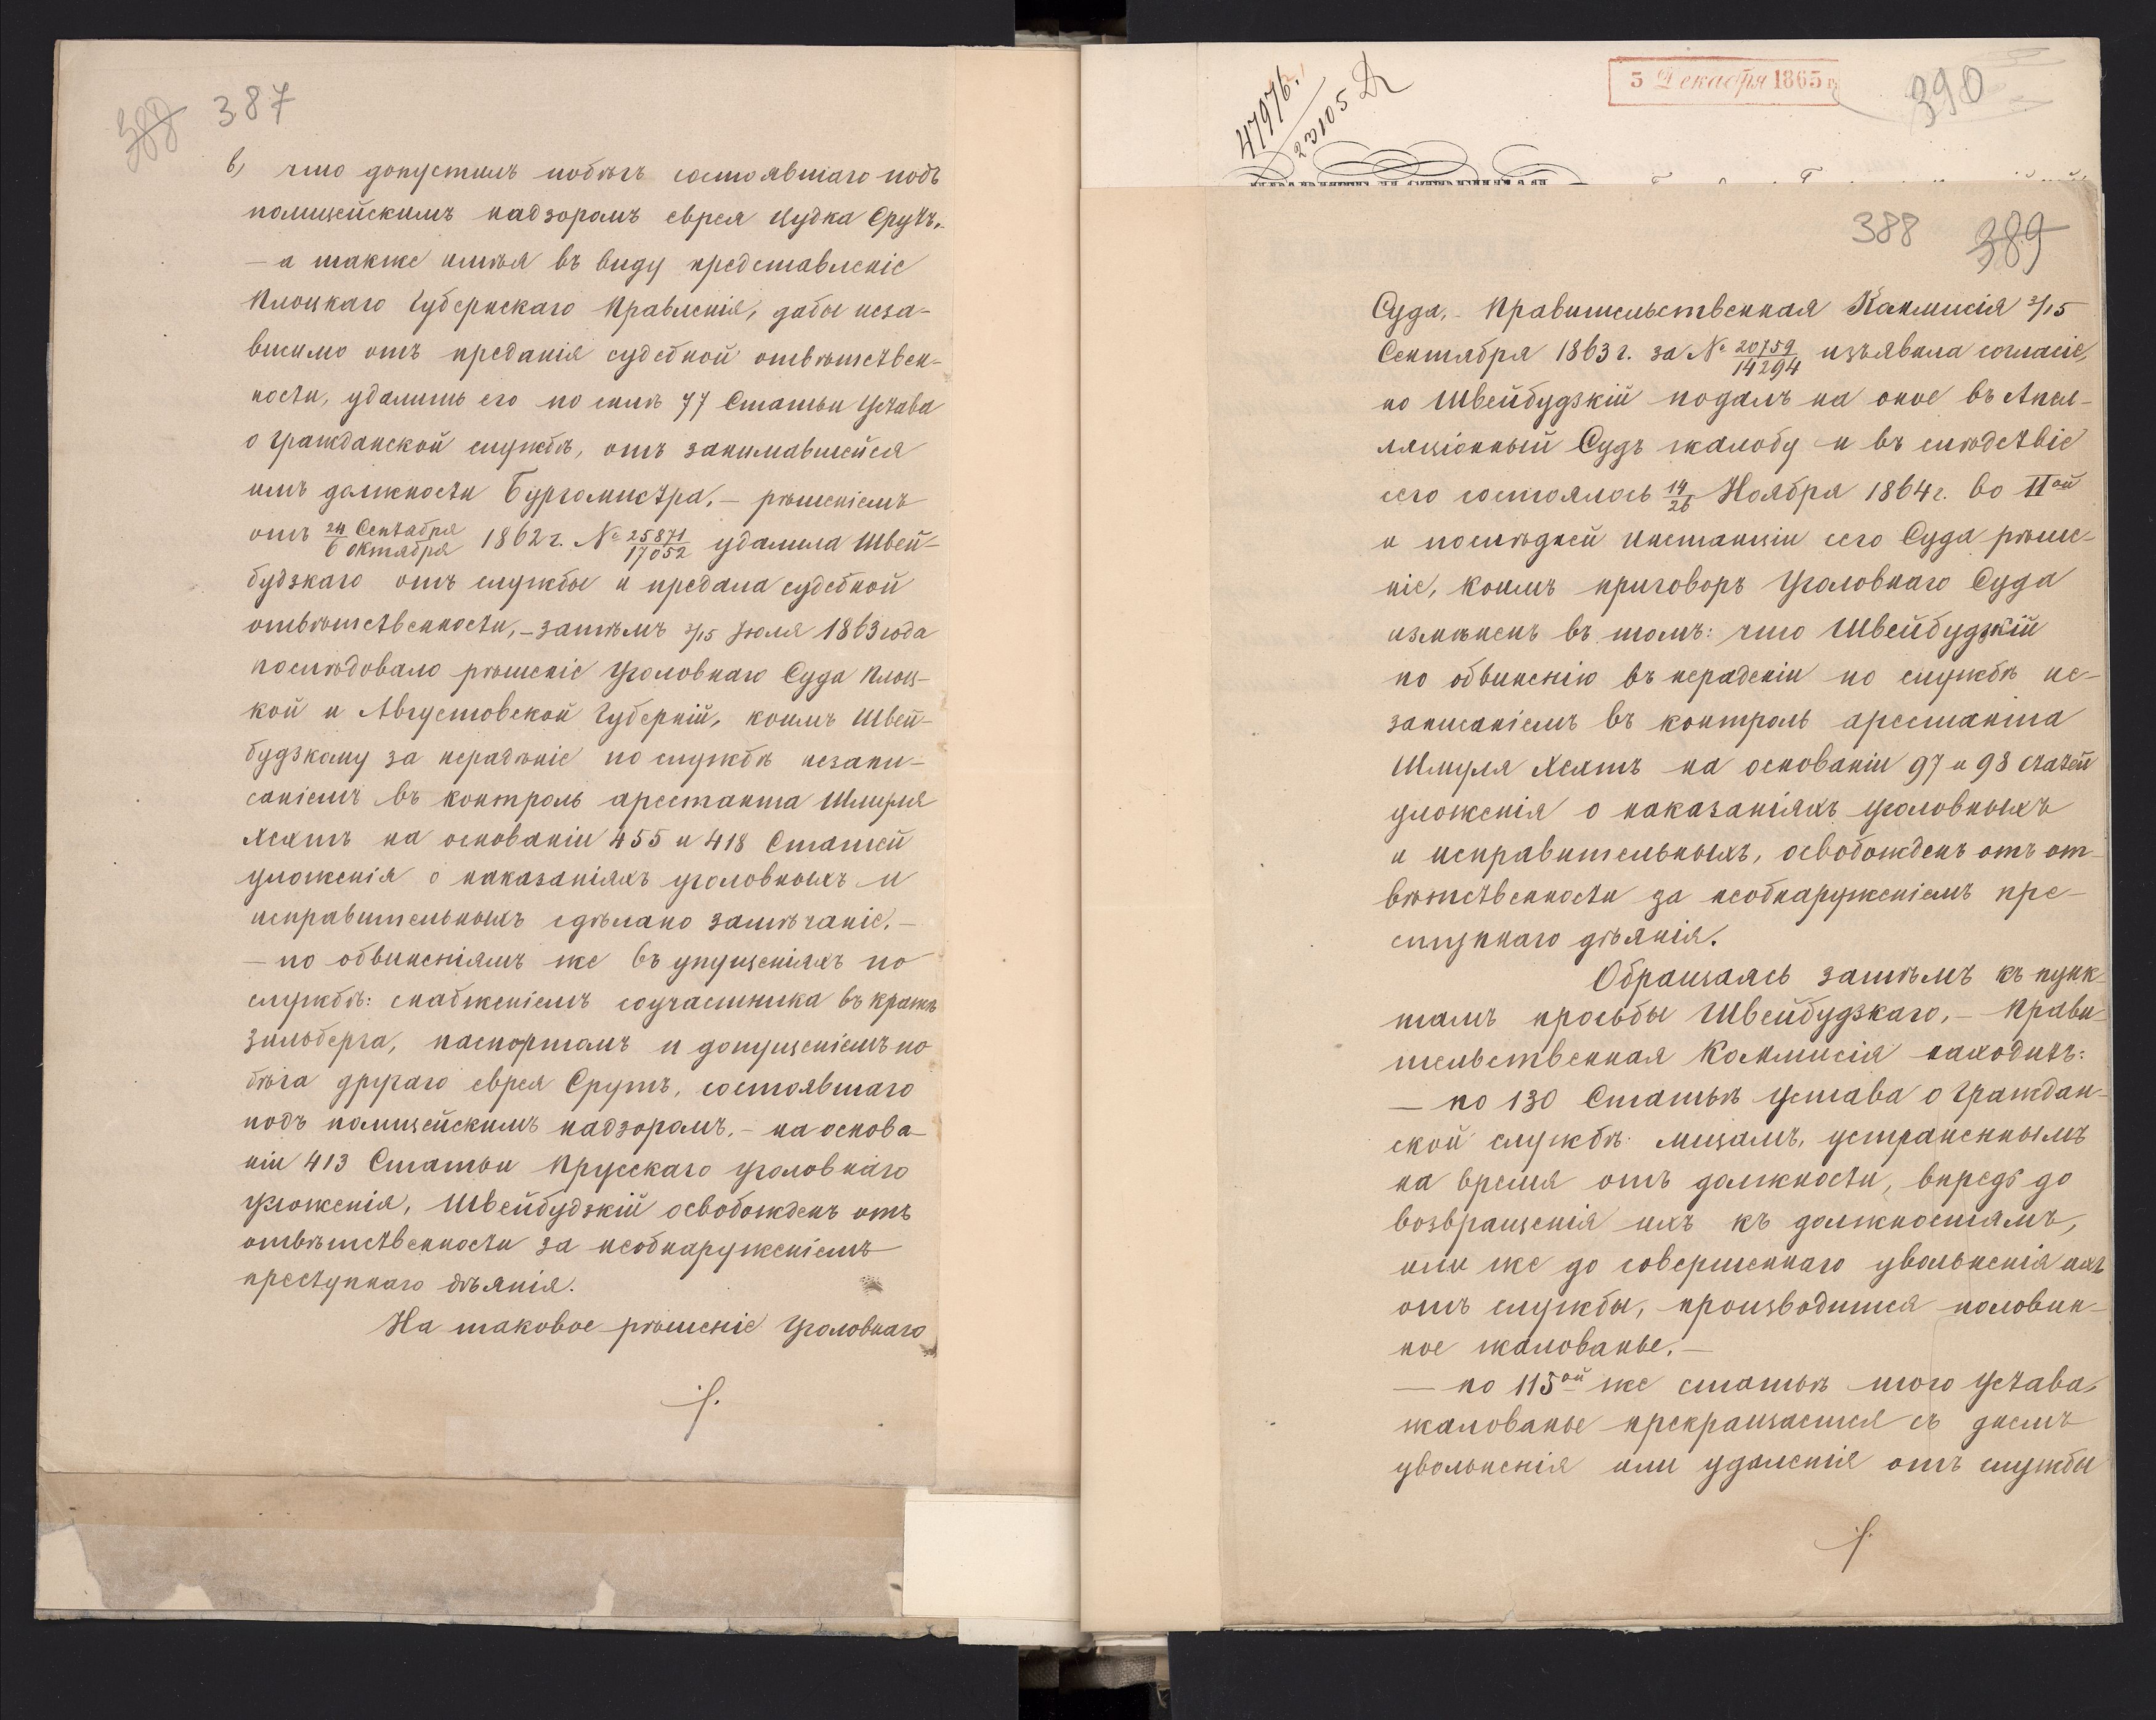 388 387
в) что допустилъ побѣгъ состоявшаго подъ
полицейскимъ надзоромъ еврея Иудка Срутъ,
— а также имѣя въ виду представленіе
Плоцкаго Губернскаго Правленія, дабы неза-
висимо отъ преданія судебной отвѣтствен-
ности, удалить его по силѣ 77 Статьи Устава
о гражданской службѣ, отъ занимавшейся
имъ должности Бургомистра, — рѣшеніемъ
отъ 24 Сентября / 6 октября 1862 г. № 25871/17052 удалила Швей-
будзкаго отъ службы и предала судебной
отвѣтственности, — затѣмъ 3/15 Іюля 1863 года
послѣдовало рѣшеніе Уголовнаго Суда Плоц-
кой и Августовской Губерній, коимъ Швей-
будзкому за нерадѣніе по службѣ незапи-
саніемъ въ контроль арестанта Шмуля
Хехтъ на основаніи 455 и 418 Статей
уложенія о наказаніяхъ уголовныхъ и
исправительныхъ сдѣлано замѣчаніе. —
— по обвиненіямъ же въ упущеніяхъ по
службѣ: снабженіемъ соучастника въ кражѣ
Зильберга, паспортомъ и допущеніемъ по
бѣга другаго еврея Срутъ, состоявшаго
подъ полицейскимъ надзоромъ, — на основа-
ніи 413 Статьи Прусскаго уголовнаго
уложенія, Швейбудзкій освобожденъ отъ
отвѣтственности за необнаруженіемъ
преступнаго дѣянія.
На таковое рѣшеніе Уголовнаго
47976.
23105
3 Декабря 1865 г.
390
388 389
Суда, Правительственная Коммисія 3/15
Сентября 1863 г. за № 20759/14294 изъявила согласіе,
но Швейбудзкій подалъ на оное въ Апел-
ляціонный Судъ жалобу и въ слѣдствіе
сего состоялось 14/26 Ноября 1864 г. во IIой
и послѣдней инстанціи сего Суда рѣше-
ніе, коимъ приговоръ Уголовнаго Суда
измѣненъ въ томъ: что Швейбудзкій
по обвиненію въ нерадѣніи по службѣ не-
записаніемъ въ контроль арестанта
Шмуля Хехтъ на основаніи 97 и 98 статей
уложенія о наказаніяхъ уголовныхъ
и исправительныхъ, освобожденъ отъ от-
вѣтственности за необнаруженіемъ пре-
ступнаго дѣянія.
Обращаясь затѣмъ къ пунк-
тамъ просьбы Швейбудзкаго, — Прави-
тельственная Коммисія находитъ:
— по 130 Статьѣ Устава о граждан-
ской службѣ: лицамъ, устраненнымъ
на время отъ должности, впредь до
возвращенія ихъ къ должностямъ,
или же до совершеннаго увольненія ихъ
отъ службы, производится половин-
ное жалованье. —
— по 115ой же статьѣ того Устава,
жалованье прекращается съ днемъ
увольненія или удаленія отъ службы